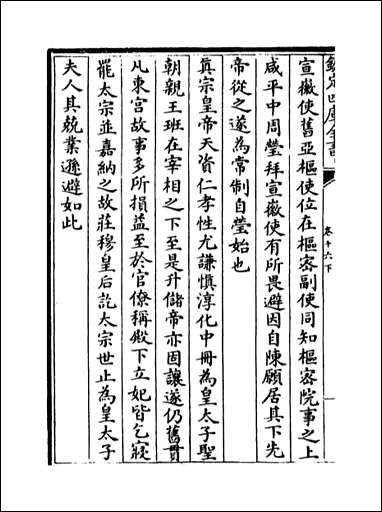 欽定四庫全書
卷十六下
宣徽使舊亞樞使位在樞密副使同知樞密院事之上
咸平中周瑩拜宣徽使有所畏避因自陳願居其下先
帝從之遂為常制自瑩始也
真宗皇帝天資仁孝性尤謙慎淳化中冊為皇太子聖
朝親王班在宰相之下至是升儲帝亦固讓遂仍舊貫
凡東宮故事多所損益至於官僚稱殿下立妃皆乞寢
罷太宗並嘉納之故莊穆皇后訖太宗世止為皇太子
夫人其兢業遜避如此